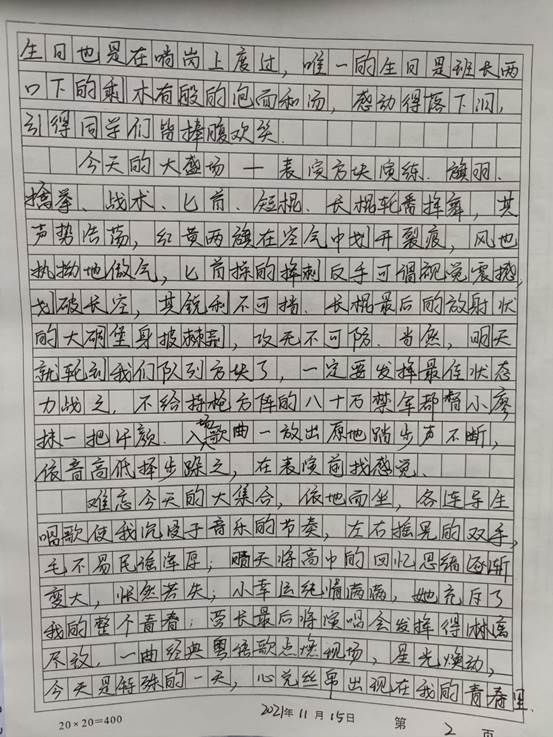 生日也是在哨岗上度过，唯一的生日是班长两
口下的剩木有般的泡面和汤，感动得落下泪，
引得同学们皆捧腹欢笑.
今天的大盛场一表演方块演练.旗羽.
擒拳、战术、匕首、短棍、长棍轮番挥舞，其
声势浩荡，红黄两旗在空气中划开裂痕，风也
执拗地做气，匕首操的挥刺反手可谓视觉震撼，
划破长空，其锐利不可挡.长棍最后的放射状
的大碉堡身披棘刺，攻无不可防.当然，明天
就轮到我们队列方块了，一定要发挥最佳状态
力战之.不给持枪方阵的八十万禁军都督小廖
抹一把汗颜.入场歌曲一放出原地踏步声不断，
依音高低择步跺之，在表演前找感觉.
难忘今天的大集合，依地而坐，各连导生
唱歌使我沉浸于音乐的节奏，左右摇晃的双手，
毛不易民谣浑厚；晴天将高中的回忆思绪逐渐
变大，怅然若失；小幸运纯情满满，她充斥了
我的整个青春；营长最后将演唱会发挥得淋漓
尽致，一曲经典粤语歌点燃现场，星光焕动，
今天是特殊的一天，心觉丝帛出现在我的青春里.
20×20=400
2021年11月15日
第2页